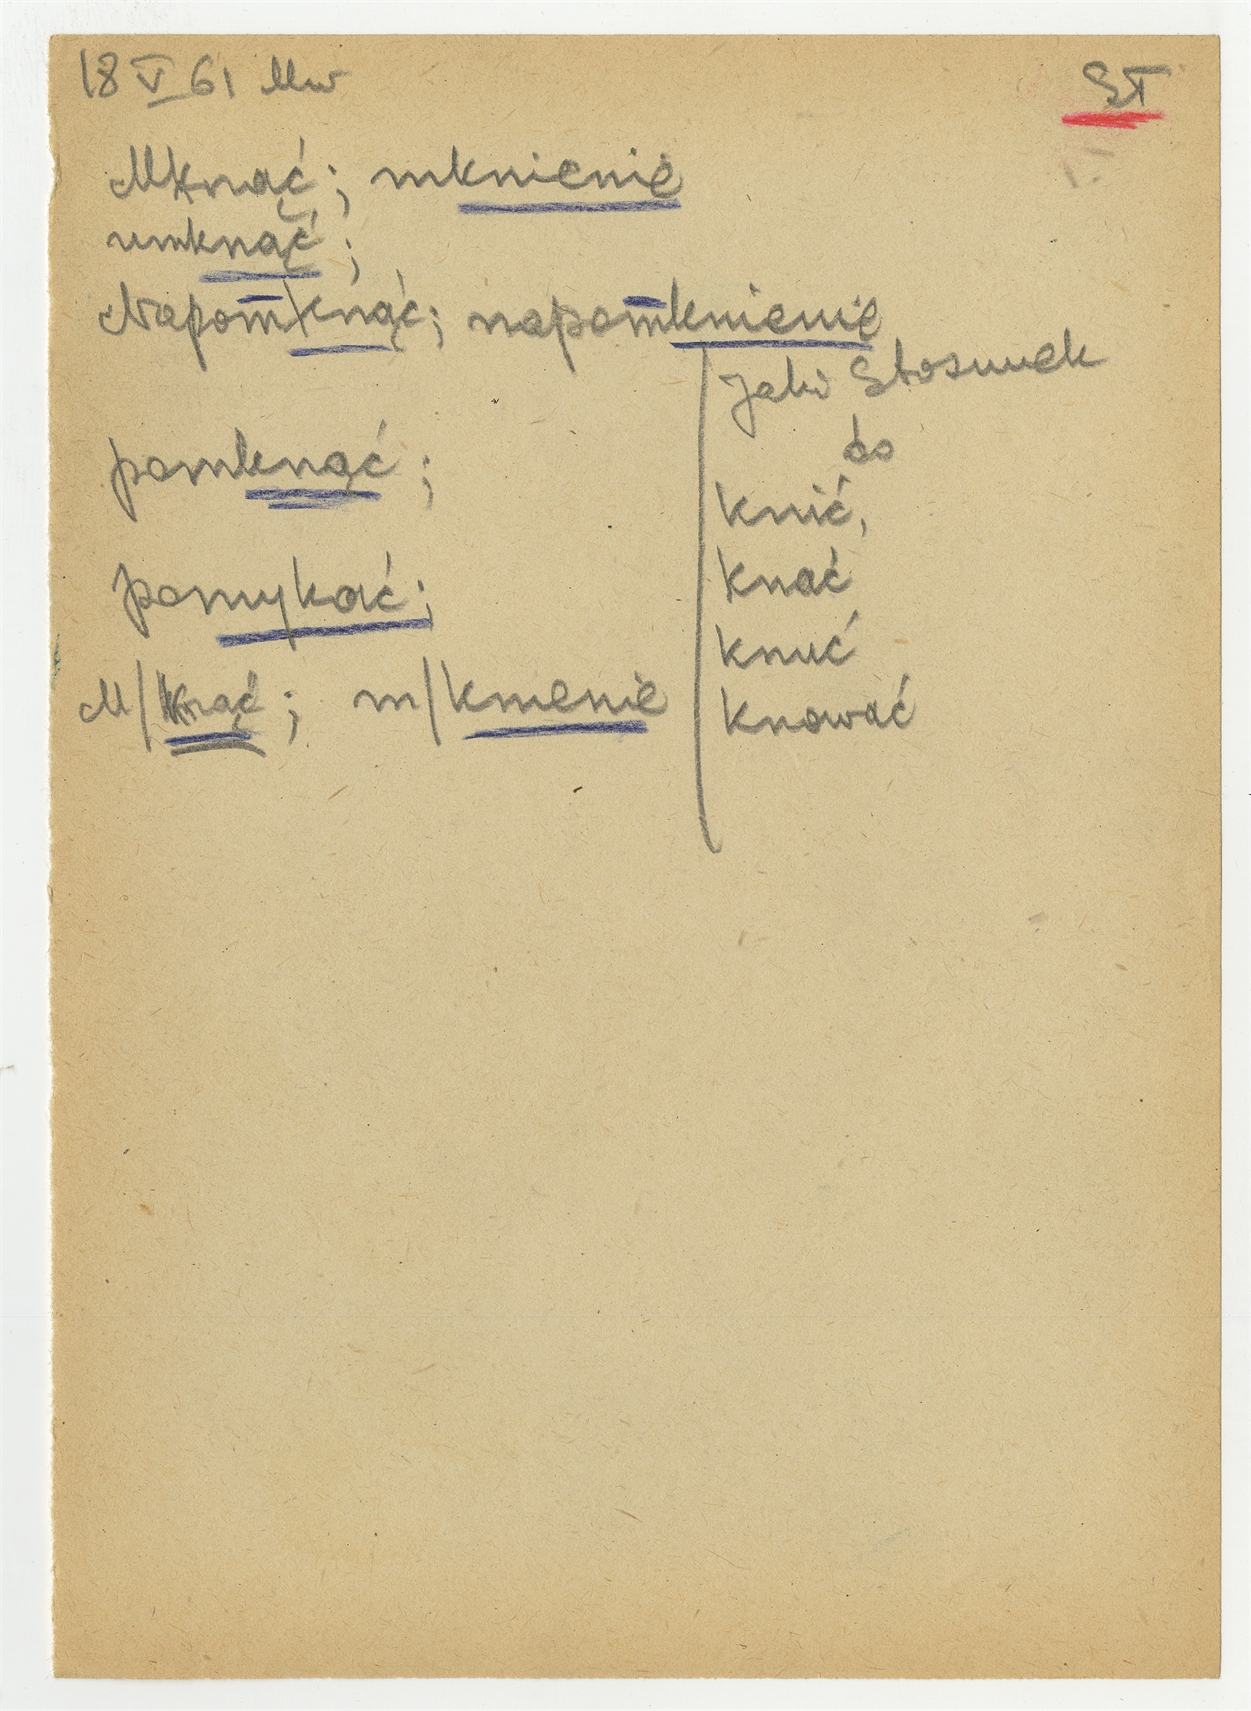 18 V 61 Mw
ST
Mknąć; mknienie
umknąć;
Napom/knąć; napomknienie
pomknąć;
pomykać;
M/knąć; m/kmenie
Jaki Stosunek
do
knić,
knać
knuć
knować